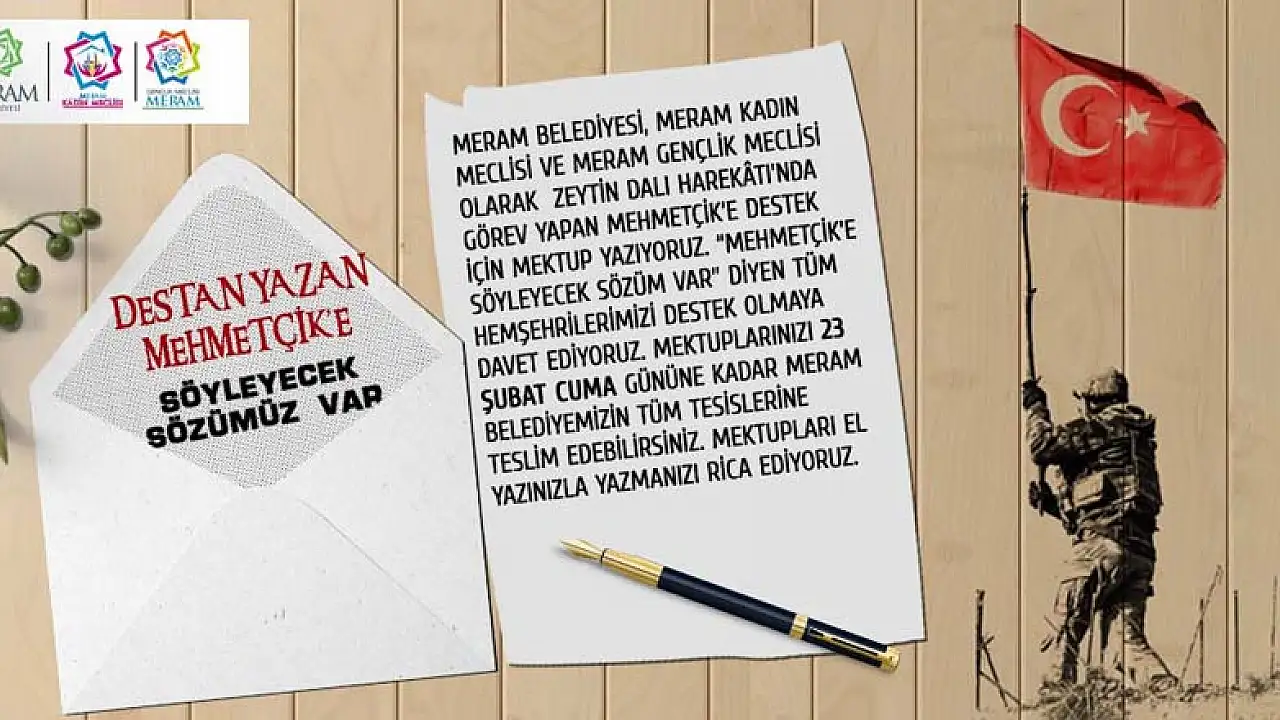 RAM
MERAM
KADIN MECLİSİ
GENÇLİK MECLİSİ
MERAM
DESTAN YAZAN
MEHMETÇİK'E
SÖYLEYECEK
SÖZÜMÜZ VAR
MERAM BELEDİYESİ, MERAM KADIN
MECLİSİ VE MERAM GENÇLİK MECLİSİ
OLARAK ZEYTİN DALI HAREKÂTI'NDA
GÖREV YAPAN MEHMETÇİK'E DESTEK
İÇİN MEKTUP YAZIYORUZ. "MEHMETÇİK'E
SÖYLEYECEK SÖZÜM VAR" DİYEN TÜM
HEMŞEHRİLERİMİZİ DESTEK OLMAYA
DAVET EDİYORUZ. MEKTUPLARINIZI 23
ŞUBAT CUMA GÜNÜNE KADAR MERAM
BELEDİYEMİZİN TÜM TESİSLERİNE
TESLİM EDEBİLİRSİNİZ. MEKTUPLARI EL
YAZINIZLA YAZMANIZI RİCA EDİYORUZ.